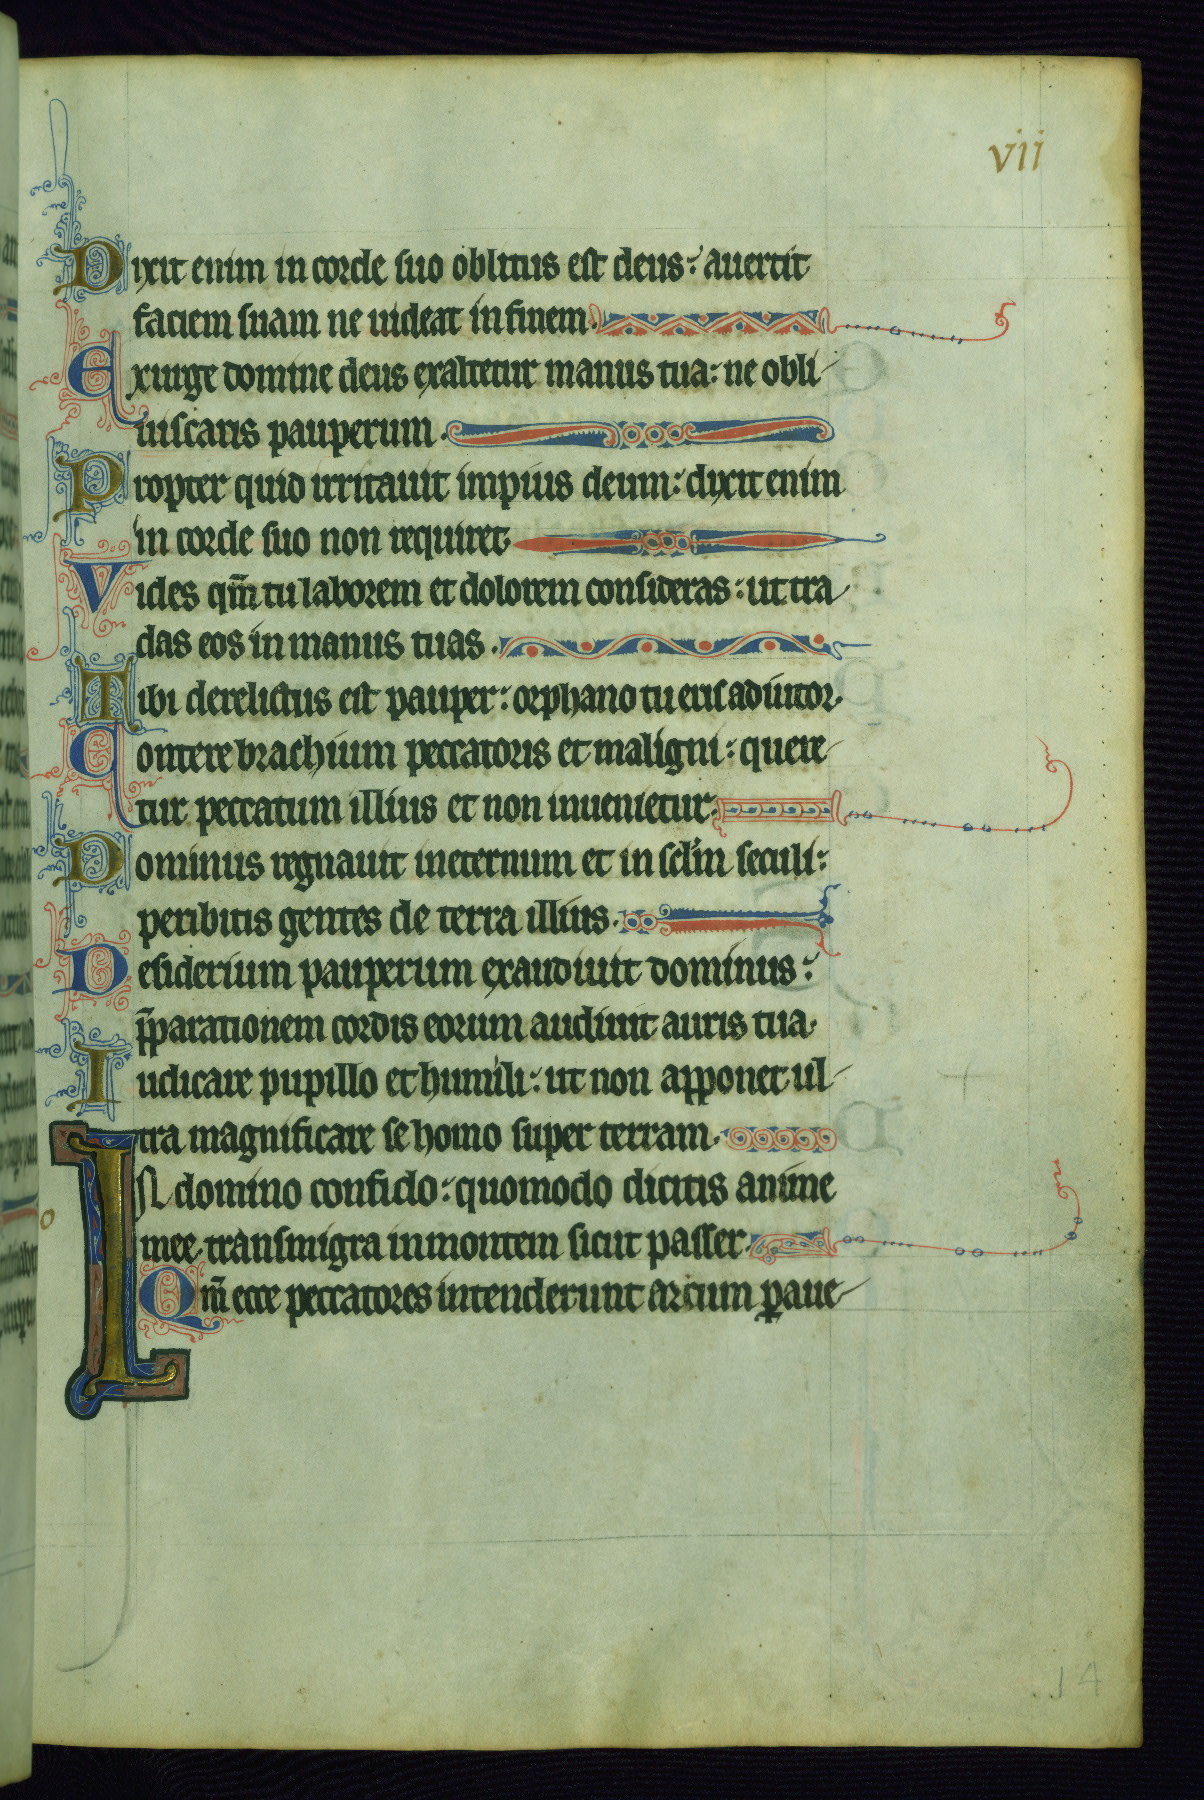 vii
Dixit enim in corde suo oblitus est deus: auertit
faciem suam ne uideat in finem.
Exurge domine deus exaltetur manus tua: ne obli
uiscaris pauperum.
Propter quid irritauit impius deum: dixit enim
in corde suo non requiret.
Vides qm̅ tu laborem et dolorem consideras: ut tra
das eos in manus tuas.
Tibi derelictus est pauper: orphano tu eris adiutor.
Contere brachium peccatoris et maligni: quere
tur peccatum illius et non inuenietur.
Dominus regnauit ineternum et in sclm̅ seculi:
peribitis gentes de terra illius.
Desiderium pauperum exaudiuit dominus:
p̅parationem cordis eorum audiuit auris tua.
Iudicare pupillo et humili: ut non apponet ul
tra magnificare se homo super terram.
IN domino confido: quomodo dicitis anime
mee. transmigra in montem sicut passer.
Qm̅ ecce peccatores intenderunt arcum ꝑaue
14